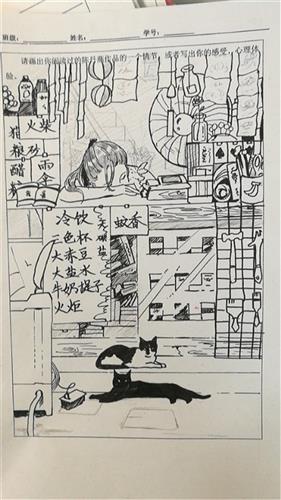 班级： 姓名： 学号：
请画出你的阅读过的陈丹燕作品的一个情节，或者写出你的感受、心理体
验。
火柴
砂
醋
雨伞
冷饮
色杯
大赤豆
大盐水
牛奶提子
火炬
无碘盐
蚊香